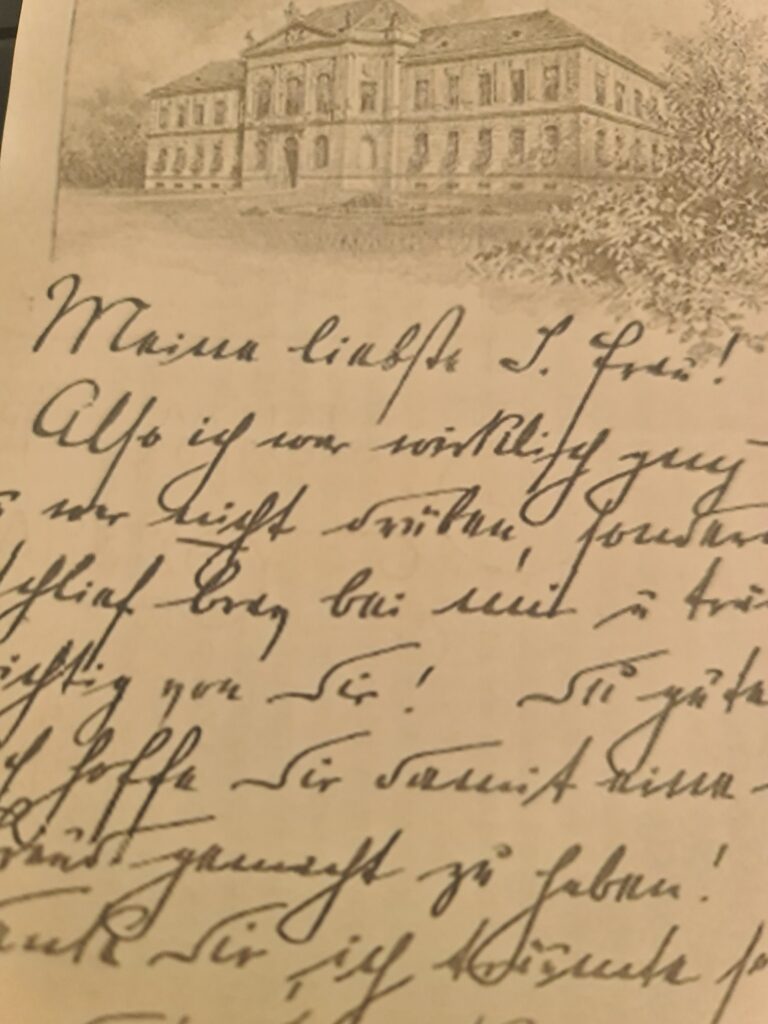 Meine liebste S. Frau!
Also ich war wirklich
war nicht drüben, sondern
schlief brav bei mir u
von Dir! Du gute
hoffe Dir damit eine
gemacht zu haben!
Dir, ich träumte